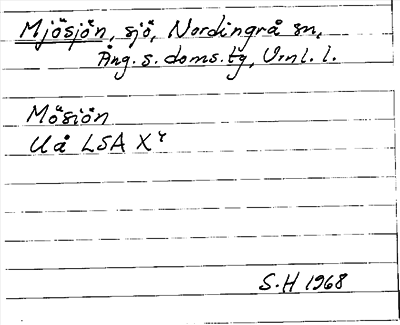 Mjösjön, sjö, Nordingrå sn,
Ång. s. doms. tg, Vnl. l.
Mösiön
Uå LSA X4
S.H 1968